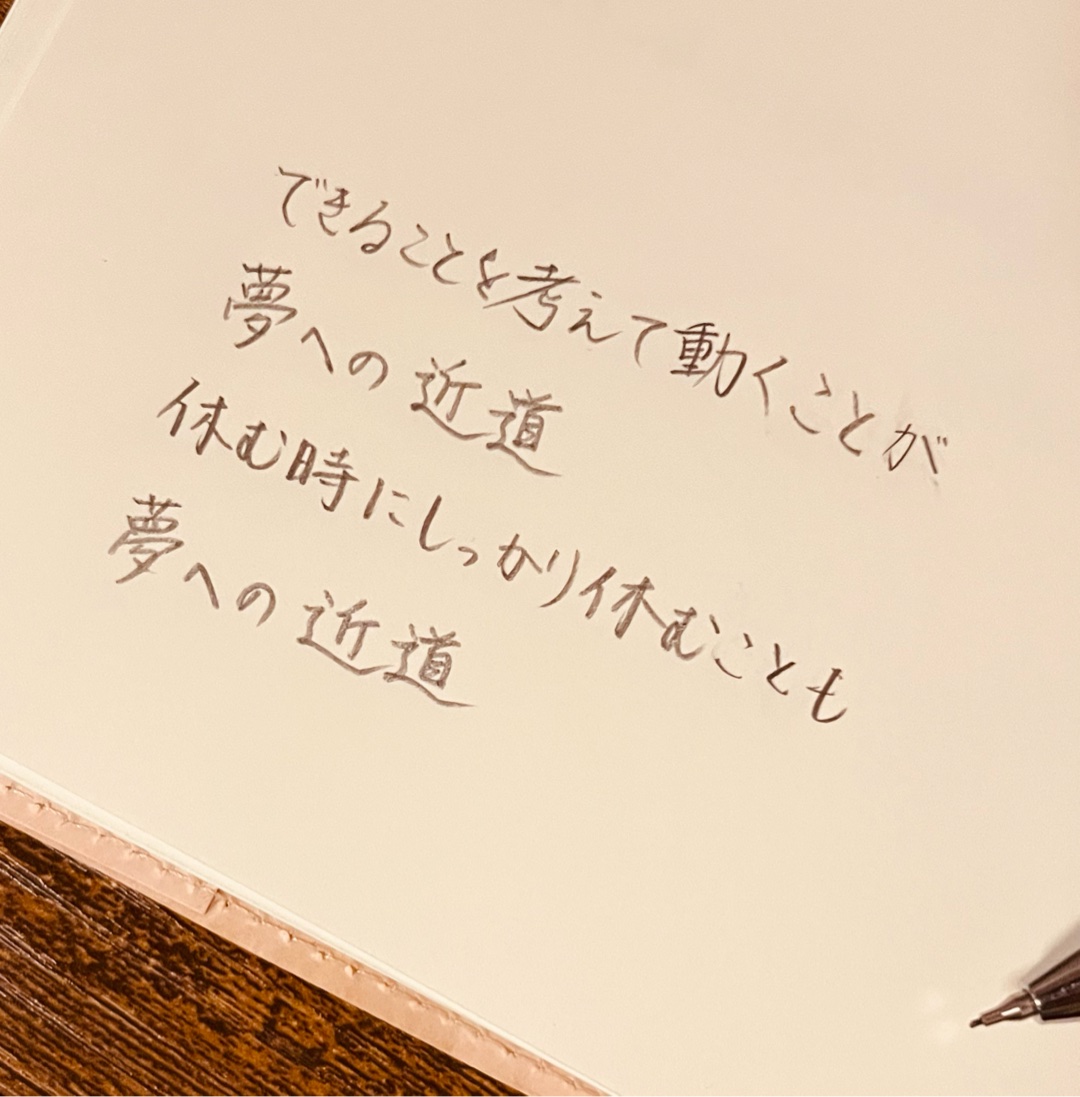 できることを考えて動くことが
夢への近道
休む時にしっかり休むことも
夢への近道